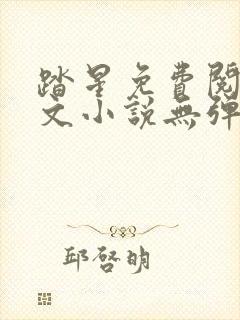 踏星免費閱
文小說無彈
邱啓明